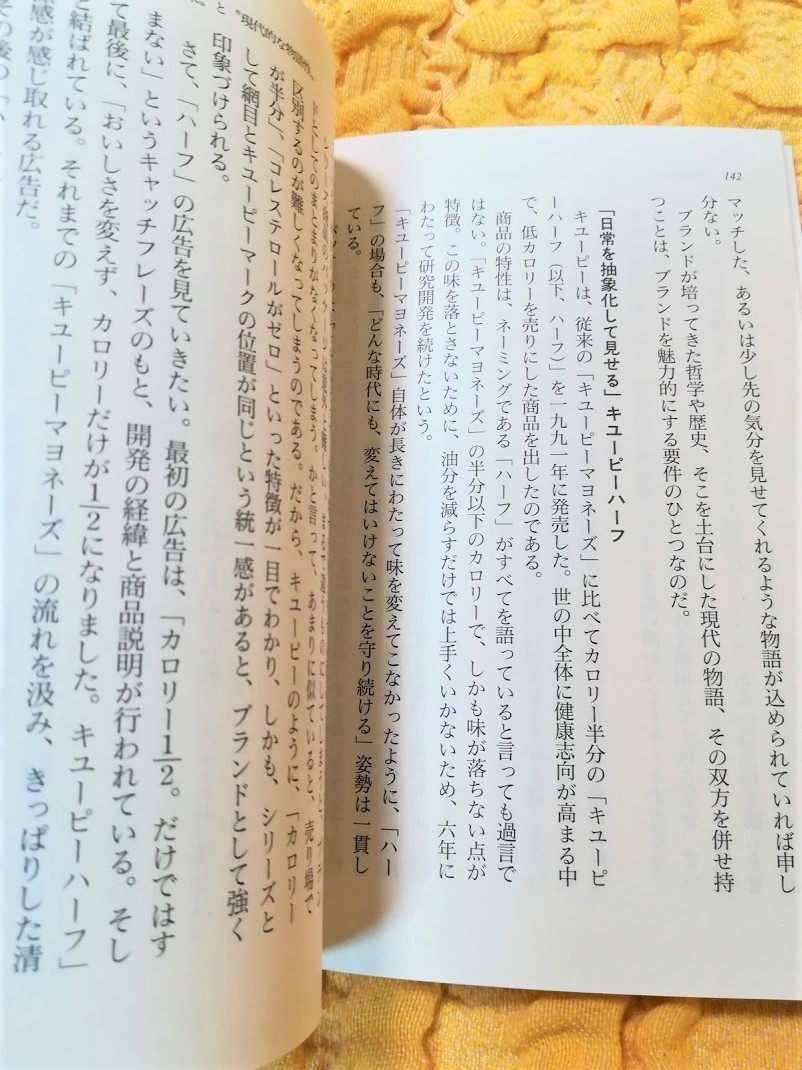 142
マッチした、あるいは少し先の気分を見せてくれるような物語が込められていれば申し
分ない。
ブランドが培ってきた哲学や歴史、そこを土台にした現代の物語、その双方を併せ持
つことは、ブランドを魅力的にする要件のひとつなのだ。
「日常を抽象化して見せる」キユーピーハーフ
キユーピーは、従来の「キユーピーマヨネーズ」に比べてカロリー半分の「キユーピ
ーハーフ（以下、ハーフ）」を一九九一年に発売した。世の中全体に健康志向が高まる中
で、低カロリーを売りにした商品を出したのである。
商品の特性は、ネーミングである「ハーフ」がすべてを語っていると言っても過言で
はない。「キユーピーマヨネーズ」の半分以下のカロリーで、しかも味が落ちない点が
特徴。この味を落とさないために、油分を減らすだけでは上手くいかないため、六年に
わたって研究開発を続けたという。
「キユーピーマヨネーズ」自体が長きにわたって味を変えてこなかったように、「ハー
フ」の場合も、「どんな時代にも、変えてはいけないことを守り続ける」姿勢は一貫し
ている。
と“現代的な物語性
ドとしてのまとまりがなくなってしまう。かと言って、あまりに似ていると、売り場で
区別するのが難しくなってしまうのである。だから、キユーピーのように、「カロリー
が半分」、「コレステロールがゼロ」といった特徴が一目でわかり、しかも、シリーズと
して網目とキユーピーマークの位置が同じという統一感があると、ブランドとして強く
印象づけられる。
さて、「ハーフ」の広告を見ていきたい。最初の広告は、「カロリー1/2。だけではす
まない」というキャッチフレーズのもと、開発の経緯と商品説明が行われている。そし
て最後に、「おいしさを変えず、カロリーだけが1/2になりました。キユーピーハーフ」
と結ばれている。それまでの「キユーピーマヨネーズ」の流れを汲み、きっぱりした清
感が感じ取れる広告だ。